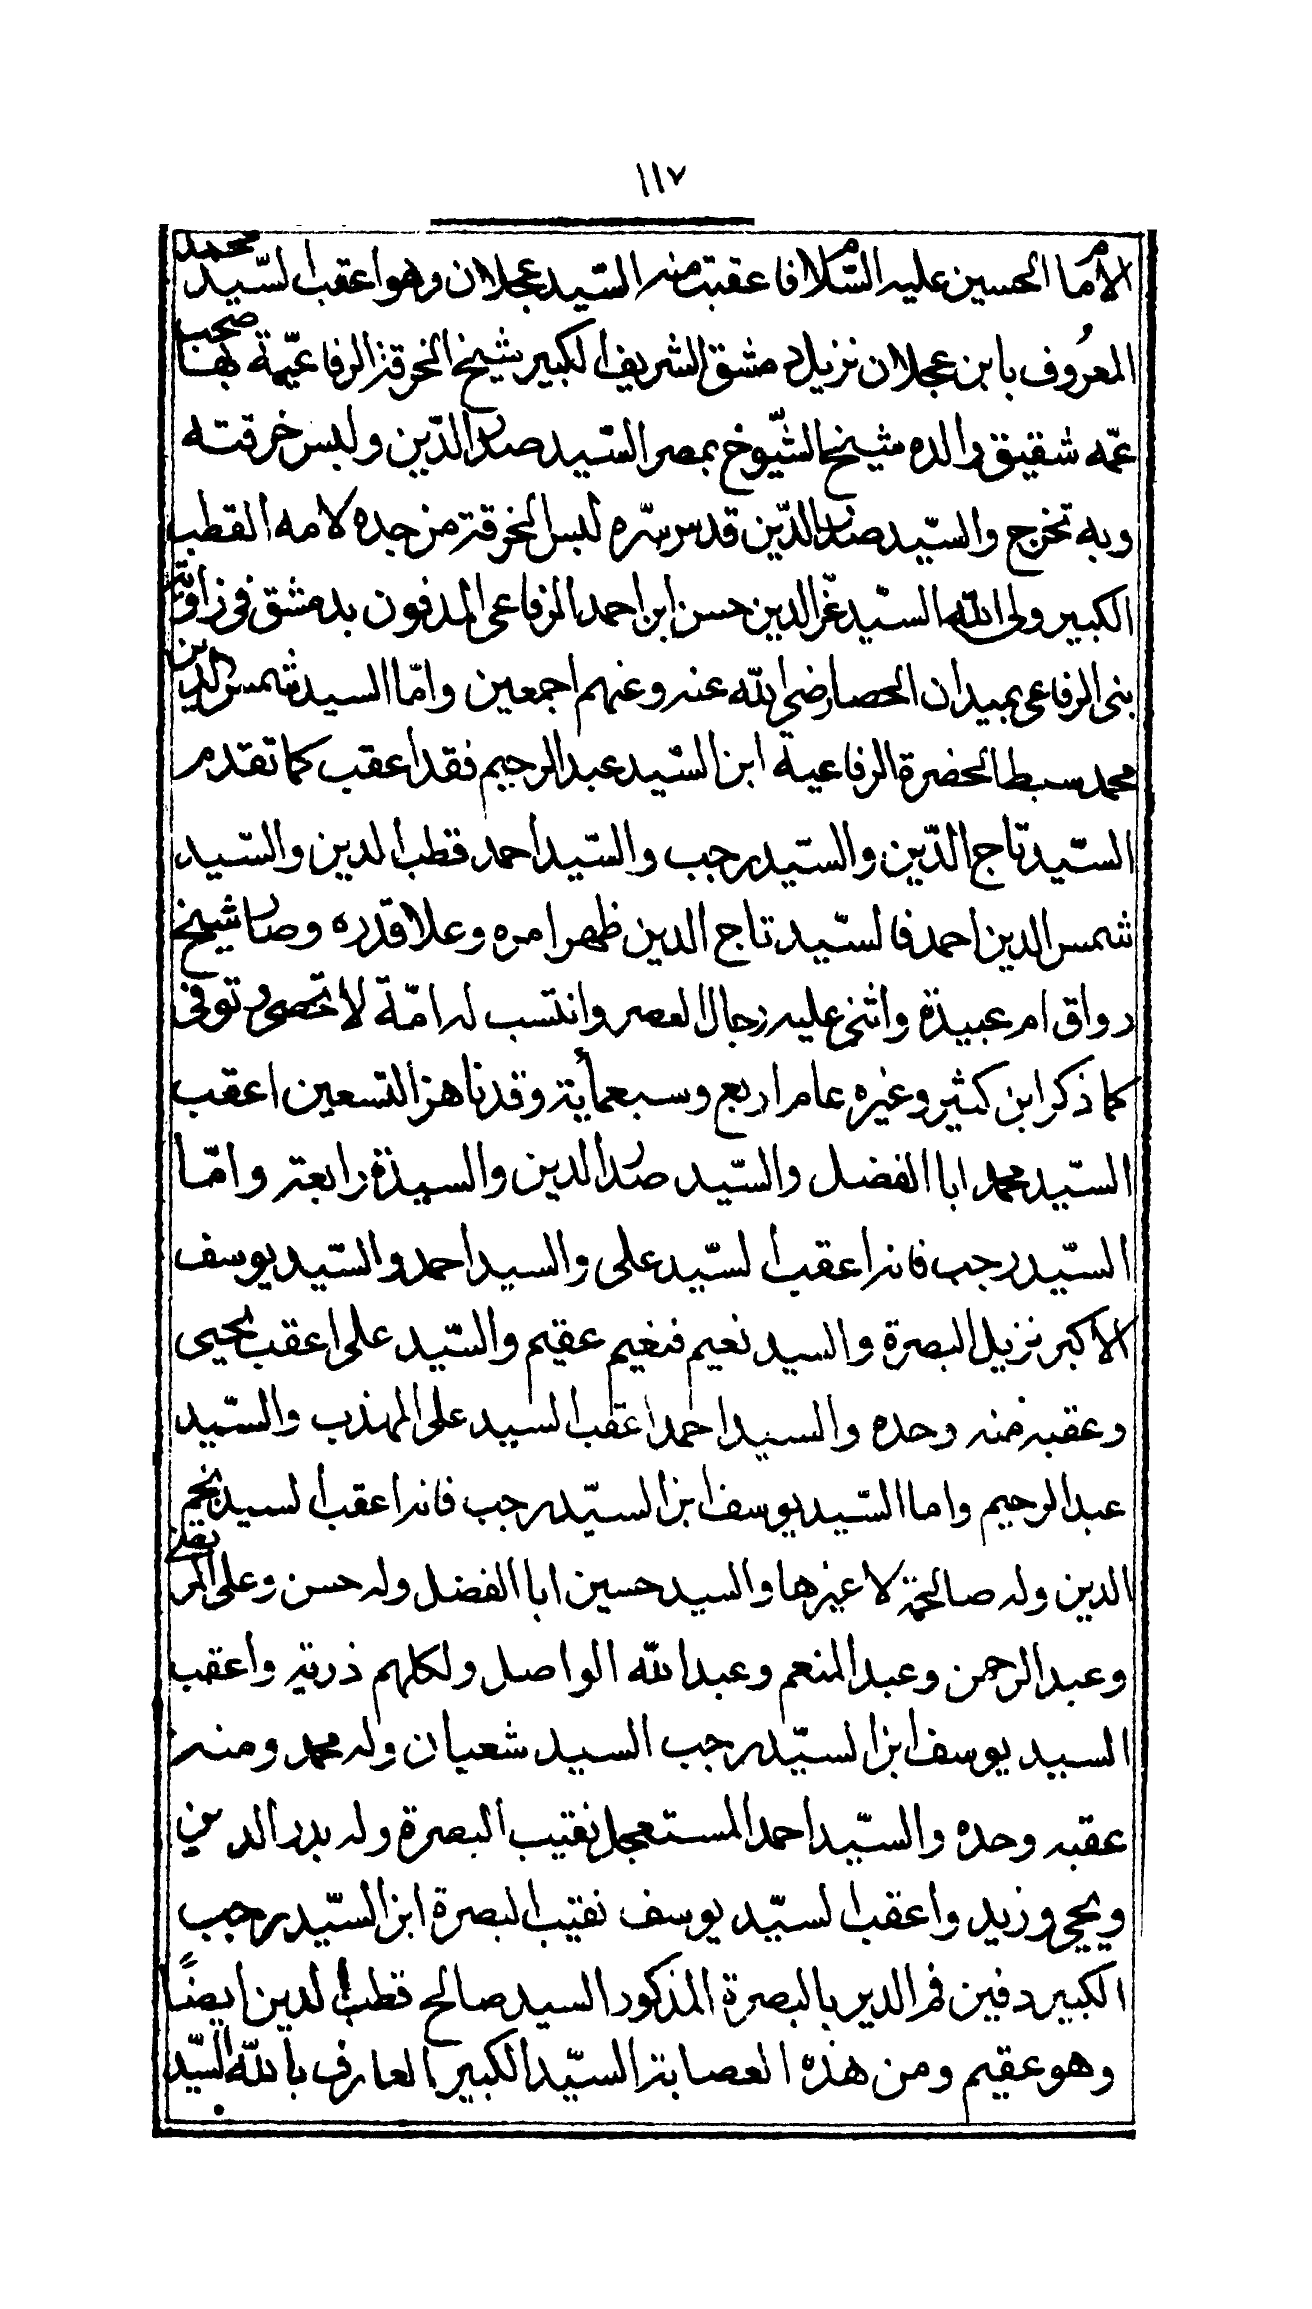 ١١٧
الامام الحسين عليه السلام فاعقبت منه السّيد عجلان وهو اعقب السّيد محمد
المعروف بابن عجلان نزيل دمشق الشريف الكبير شيخ الخرقة الرفاعيّة بها صحب
عمّه شقيق والده شيخ الشّيوخ بمصر السّيد صدر الدّين ولبس خرقته
وبه تخرج والسّيد صدر الدّين قدس سرّه لبس الخرقة من جده لامه القطب
الكبير ولى الله السّيد عزّ الدين حسن ابن احمد الرفاعى المدفون بدمشق فى زاوية
بنى الرفاعى بميدان الحصا رضى الله عنه وعنهم اجمعين وامّا السيد شمس الدين
محمد سبط الحضرة الرفاعية ابن السّيد عبد الرحيم فقد اعقب كما تقدم
السّيد تاج الدّين والسّيد رجب والسّيد احمد قطب الدين والسّيد
شمس الدين احمد فالسّيد تاج الدين ظهر امره وعلا قدره وصار شيخ
رواق ام عبيدة واثنى عليه رجال العصر وانتسب له امّة لا تحصى توفى
كما ذكر ابن كثير وغيره عام اربع وسبعمأية وقد ناهز التسعين اعقب
السّيد محمد ابا الفضل والسّيد صدر الدين والسيدة رابعة وامّا
السّيد رجب فانه اعقب السّيد على والسيد احمد والسّيد يوسف
الاكبر نزيل البصرة والسيد نعيم فنعيم عقيم والسّيد على اعقب يحيى
وعقبه منه وحده والسيد احمد اعقب السيد على المهذب والسّيد
عبد الرحيم واما السّيد يوسف ابن السّيد رجب فانه اعقب السيد نجم
الدين وله صالحة لا غيرها والسيد حسين ابا الفضل وله حسن وعلى المرتضى
وعبد الرحمن وعبد المنعم وعبد الله الواصل ولكلهم ذرية واعقب
السيد يوسف ابن السّيد رجب السيد شعبان وله محمد ومنه
عقبه وحده والسّيد احمد المستعجل نقيب البصرة وله بدر الدين
ويحيى وزيد واعقب السّيد يوسف نقيب البصرة ابن السّيد رجب
الكبير دفين فم الدير بالبصرة المذكور السيد صالح قطب الدين ايضًا
وهو عقيم ومن هذه العصابة السّيد الكبير العارف بالله السّيد